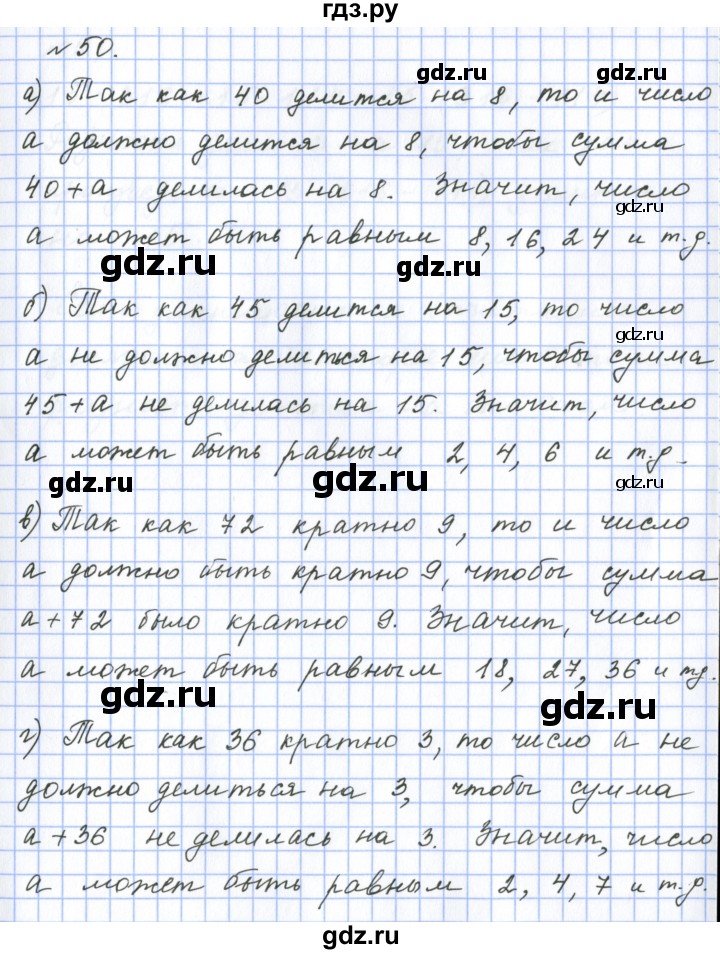 гдз.ру
№ 50.
gdz.ru
а) Так как 40 делится на 8, то и число
gdz.ru
а должно делится на 8, чтобы сумма
40 + а делилась на 8. Значит, число
gdz.ru
а может быть равным 8, 16, 24 и т.д.
gdz.ru gdz.ru
б) Так как 45 делится на 15, то число
gdz.ru
а не должно делиться на 15, чтобы сумма
45 + а не делилась на 15. Значит, число
а может быть равным 2, 4, 6 и т.д.
gdz.ru gdz.ru gdz.ru
в) Так как 72 кратно 9, то и число
а должно быть кратно 9, чтобы сумма
а + 72 было кратно 9. Значит, число
а может быть равным 18, 27, 36 и т.д.
gdz.ru gdz.ru
г) Так как 36 кратно 3, то число а не
должно делиться на 3, чтобы сумма
gdz.ru gdz.ru
а + 36 не делилась на 3. Значит, число
а может быть равным 2, 4, 7 и т.д.
gdz.ru gdz.ru
gdz.ru